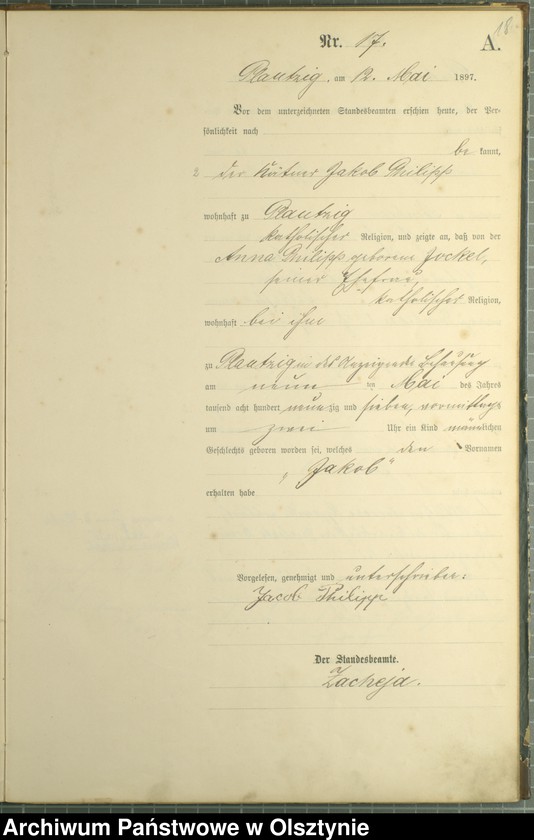 18.
Nr. 17. A.
Plautzig, am 12. Mai 1897.
Vor dem unterzeichneten Standesbeamten erschien heute, der Per-
sönlichkeit nach
be kannt,
der Kätner Jakob Philipp
wohnhaft zu Plautzig
katholischer Religion, und zeigte an, daß von der
Anna Philipp geborene Jockel,
seiner Ehefrau,
katholischer Religion,
wohnhaft bei ihm
zu Plautzig in des Anzeigenden Behausung
am neun ten Mai des Jahres
tausend acht hundert neun zig und sieben, vormittags
um zwei Uhr ein Kind männlichen
Geschlechts geboren worden sei, welches den Vornamen
„Jakob“
erhalten habe
Vorgelesen, genehmigt und unterschrieben:
Jacob Philipp
Der Standesbeamte.
Zacheja.
Archiwum Państwowe w Olsztynie